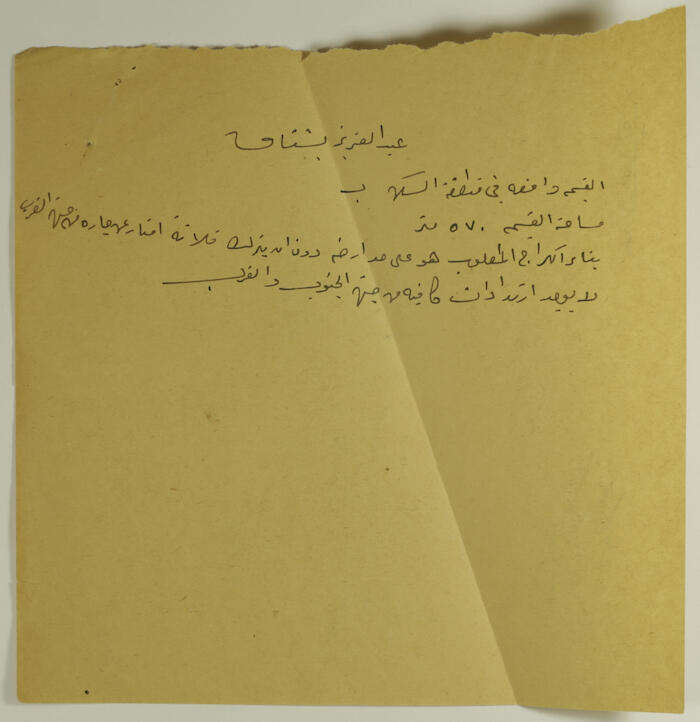 عبد العزيز بشناق
القسمه واقعه في منطقة السكن ب
مساحة القسمه ٥٧٠ متر
بناء الكراج المطلوب هو على حد ارضه دون ان يترك ثلاثة امتار عن جاره من جهة الغرب
لا يوجد ارتدادات كافيه من جهة الجنوب والغرب